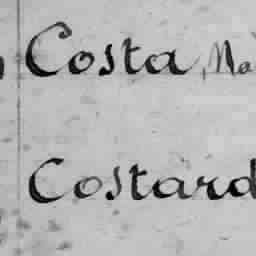 Costa, Ma
Costard